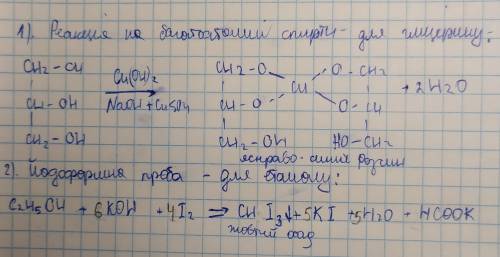 1). Реакція на багатоатомні спирти - для гліцерину:
CH2 - OH Cu(OH)2 CH2 - O O - CH2
CH - OH NaOH + CuSO4 CH - O Cu O - CH + 2H2O
CH2 - OH CH2 - OH HO - CH2
яскраво-синій розчин
2). Йодоформна проба - для етанолу:
C2H5OH + 6KOH + 4I2 ⇒ CH I3↓ + 5KI + 5H2O + HCOOK
жовтий осад